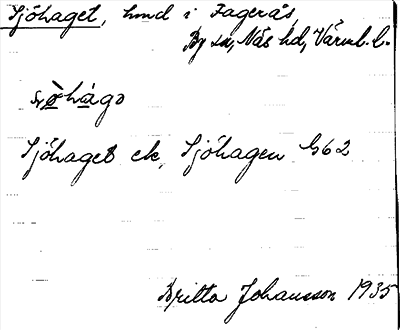 Sjöhaget, hmd i Fagerås,
By sn, Näs hd, Värml. l.
Sjöhaget ek, Sjöhagen G62
Britta Johansson 1935